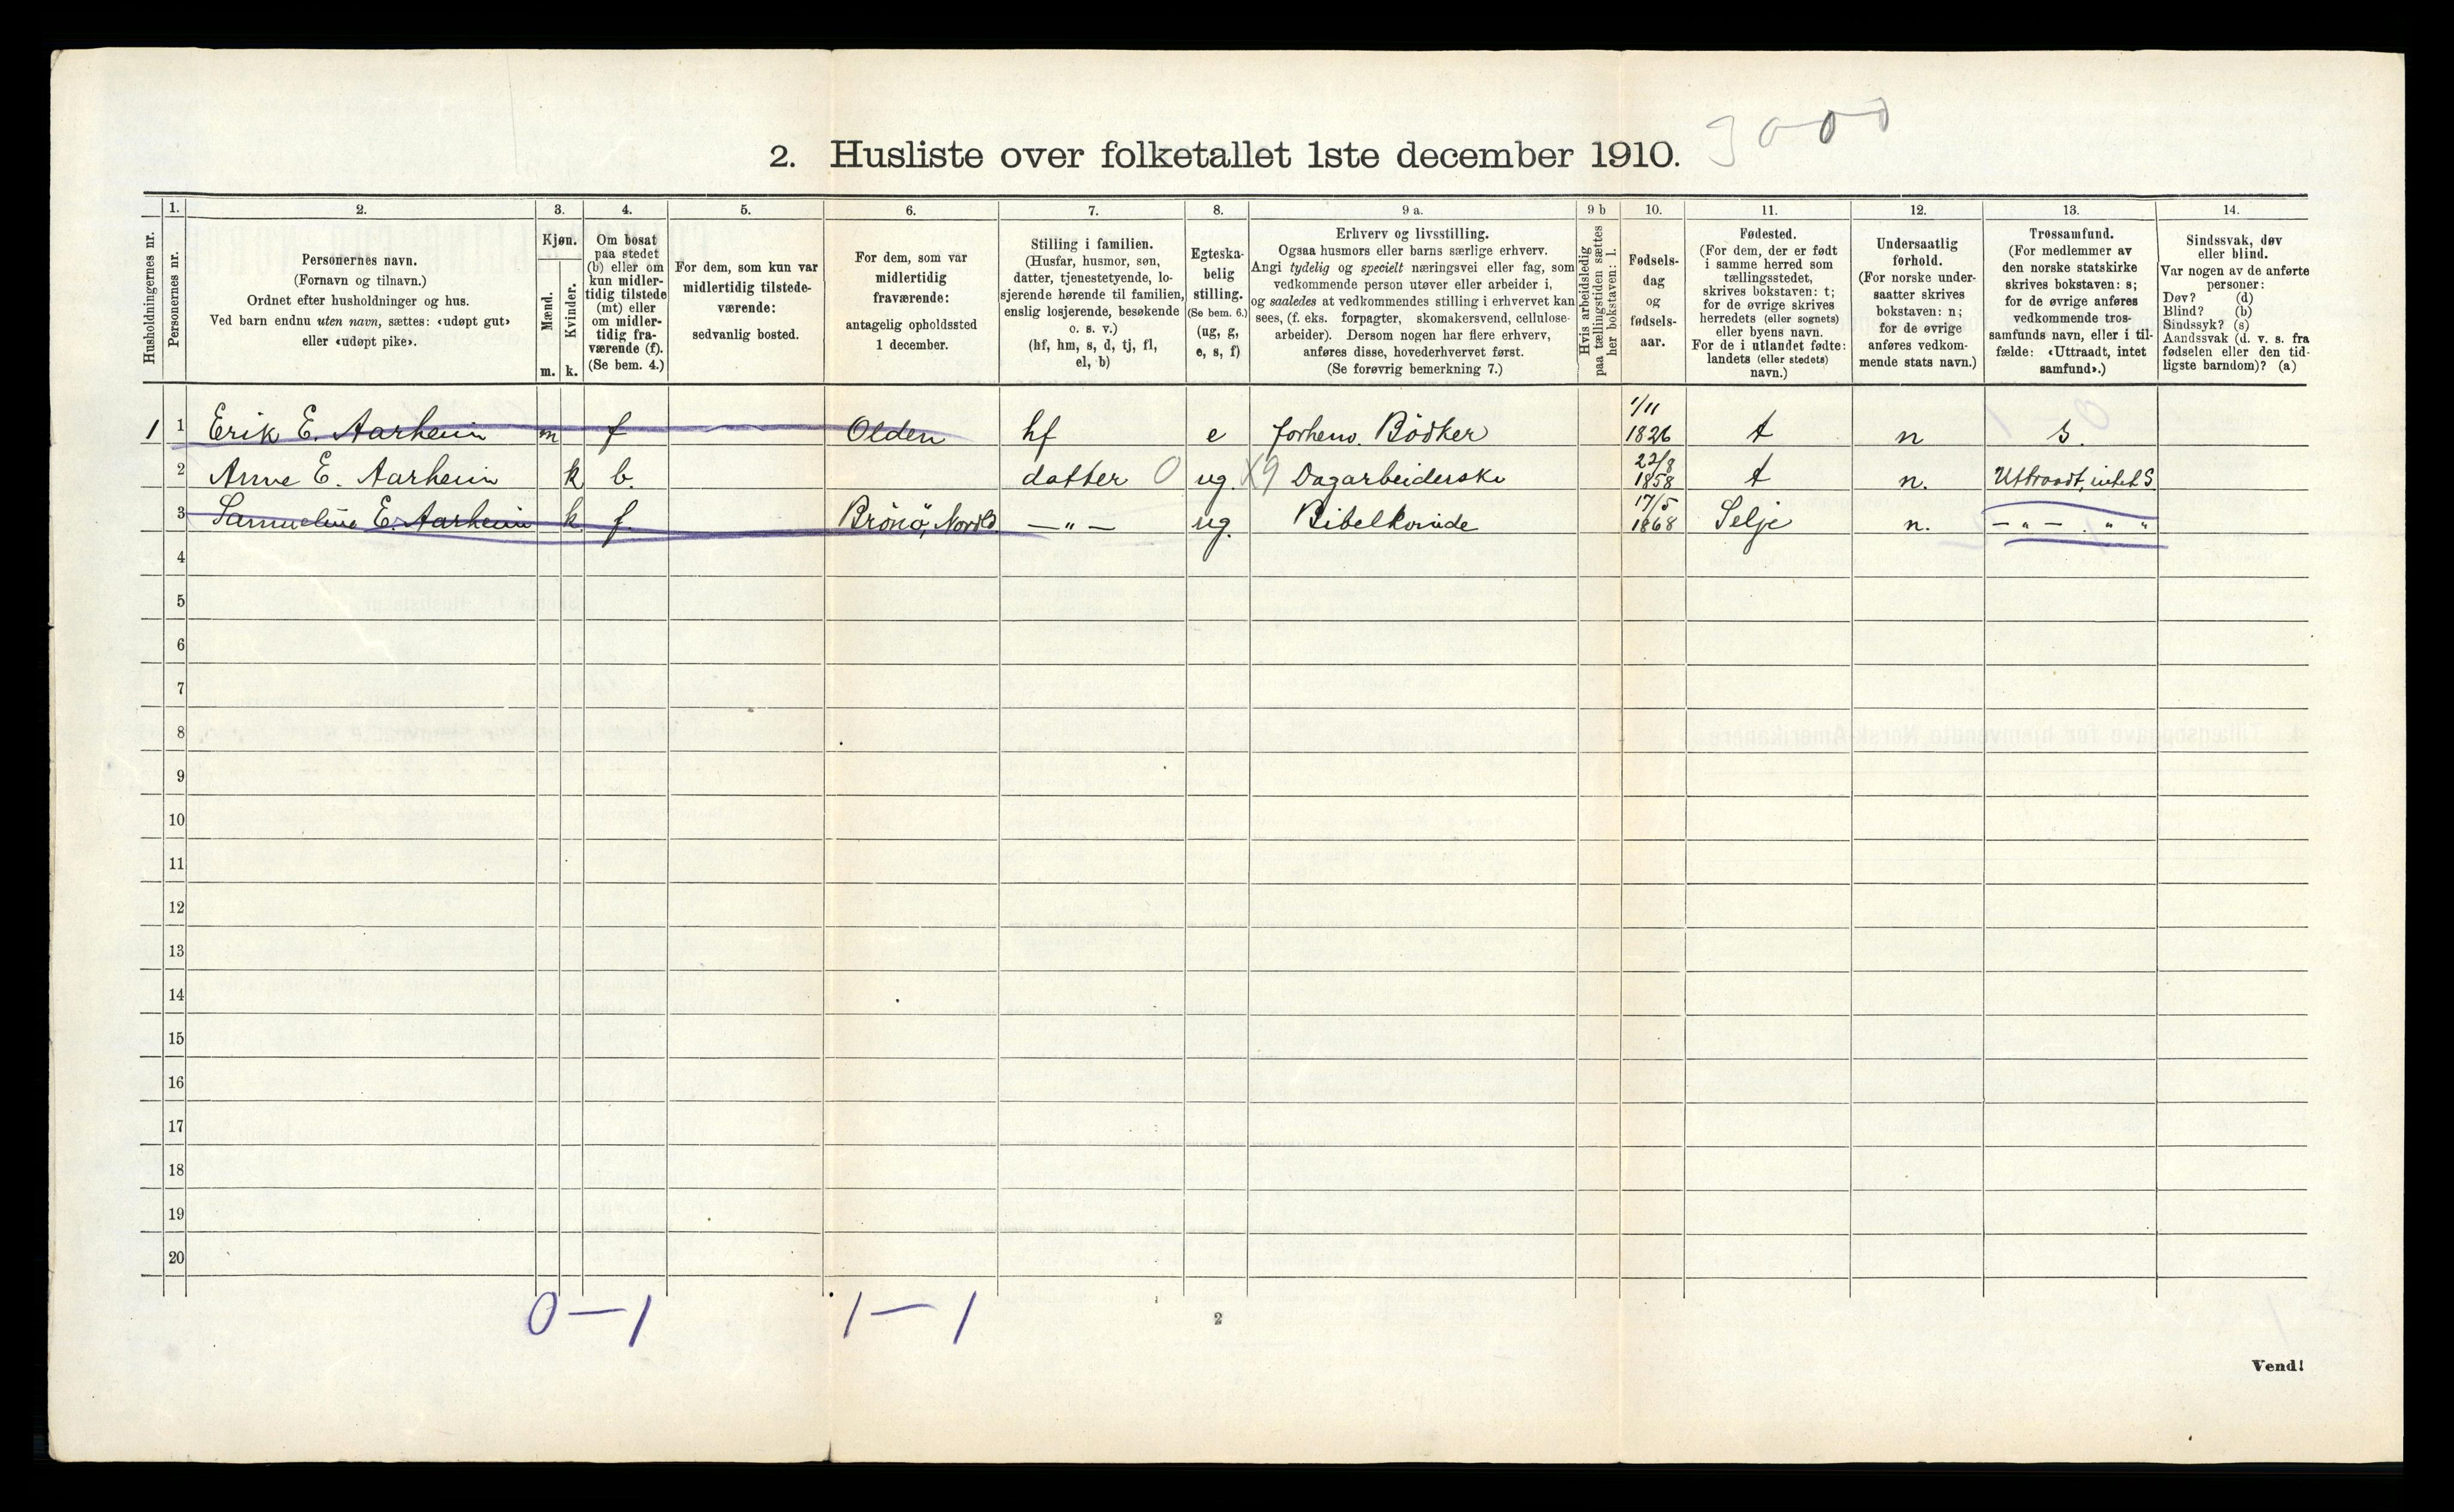 3000
2. Husliste over folketallet 1ste december 1910.
Husholdningernes nr.
1.
Personernes nr.
2.
Personernes navn.
(Fornavn og tilnavn.)
Ordnet efter husholdninger og hus.
Ved barn endnu uten navn, sættes: «udøpt gut»
eller «udøpt pike».
3.
Kjøn.
Mænd.
m.
Kvinder.
k.
4.
Om bosat
paa stedet
(b) eller om
kun midler-
tidig tilstede
(mt) eller
om midler-
tidig fra-
værende (f).
(Se bem. 4.)
5.
For dem, som kun var
midlertidig tilstede-
værende:
sedvanlig bosted.
6.
For dem, som var
midlertidig
fraværende:
antagelig opholdssted
1 december.
7.
Stilling i familien.
(Husfar, husmor, søn,
datter, tjenestetyende, lo-
sjerende hørende til familien,
enslig losjerende, besøkende
o. s. v.)
(hf, hm, s, d, tj, fl,
el, b)
8.
Egteska-
belig
stilling.
(Se bem. 6.)
(ug, g,
e, s, f)
9 a.
Erhverv og livsstilling.
Ogsaa husmors eller barns særlige erhverv.
Angi tydelig og specielt næringsvei eller fag, som
vedkommende person utøver eller arbeider i,
og saaledes at vedkommendes stilling i erhvervet kan
sees, (f. eks. forpagter, skomakersvend, cellulose-
arbeider). Dersom nogen har flere erhverv,
anføres disse, hovederhvervet først.
(Se forøvrig bemerkning 7.)
9 b
Hvis arbeidsledig
paa tællingstiden sættes
her bokstaven: l.
10.
Fødsels-
dag
og
fødsels-
aar.
11.
Fødested.
(For dem, der er født
i samme herred som
tællingsstedet,
skrives bokstaven: t;
for de øvrige skrives
herredets (eller sognets)
eller byens navn.
For de i utlandet fødte:
landets (eller stedets)
navn.)
12.
Undersaatlig
forhold.
(For norske under-
saatter skrives
bokstaven: n;
for de øvrige
anføres vedkom-
mende stats navn.)
13.
Trossamfund.
(For medlemmer av
den norske statskirke
skrives bokstaven: s;
for de øvrige anføres
vedkommende tros-
samfunds navn, eller i til-
fælde: «Uttraadt, intet
samfund».)
14.
Sindssvak, døv
eller blind.
Var nogen av de anførte
personer:
Døv? (d)
Blind? (b)
Sindssyk? (s)
Aandssvak (d. v. s. fra
fødselen eller den tid-
ligste barndom)? (a)
1 1 Erik E. Aarheim m f Olden hf e forhenv. Bödker 1/11 1826 t n s.
2 Anne E. Aarheim k b. datter 0 ug. X9 Dagarbeiderske 22/8 1858 t n. Uttraadt, intet S.
3 Samueline E. Aarheim k f. Brönö, Nordld. — " — ug. Bibelkvinde 17/5 1868 Selje n. — " — . " "
4
5
6
7
8
9
10
11
12
13
14
15
16
17
18
19
20
0 — 1 1 — 1
2
Vend!